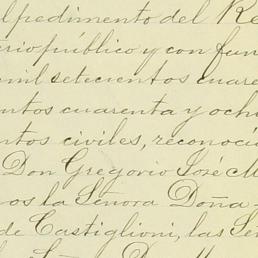 l pedimento del Re
erio público y con fun
mil setecientos cuare
entos cuarenta y och
ntos civiles, reconoci
Don Gregorio José M
os la Señora Doña
de Castiglioni, las Señ